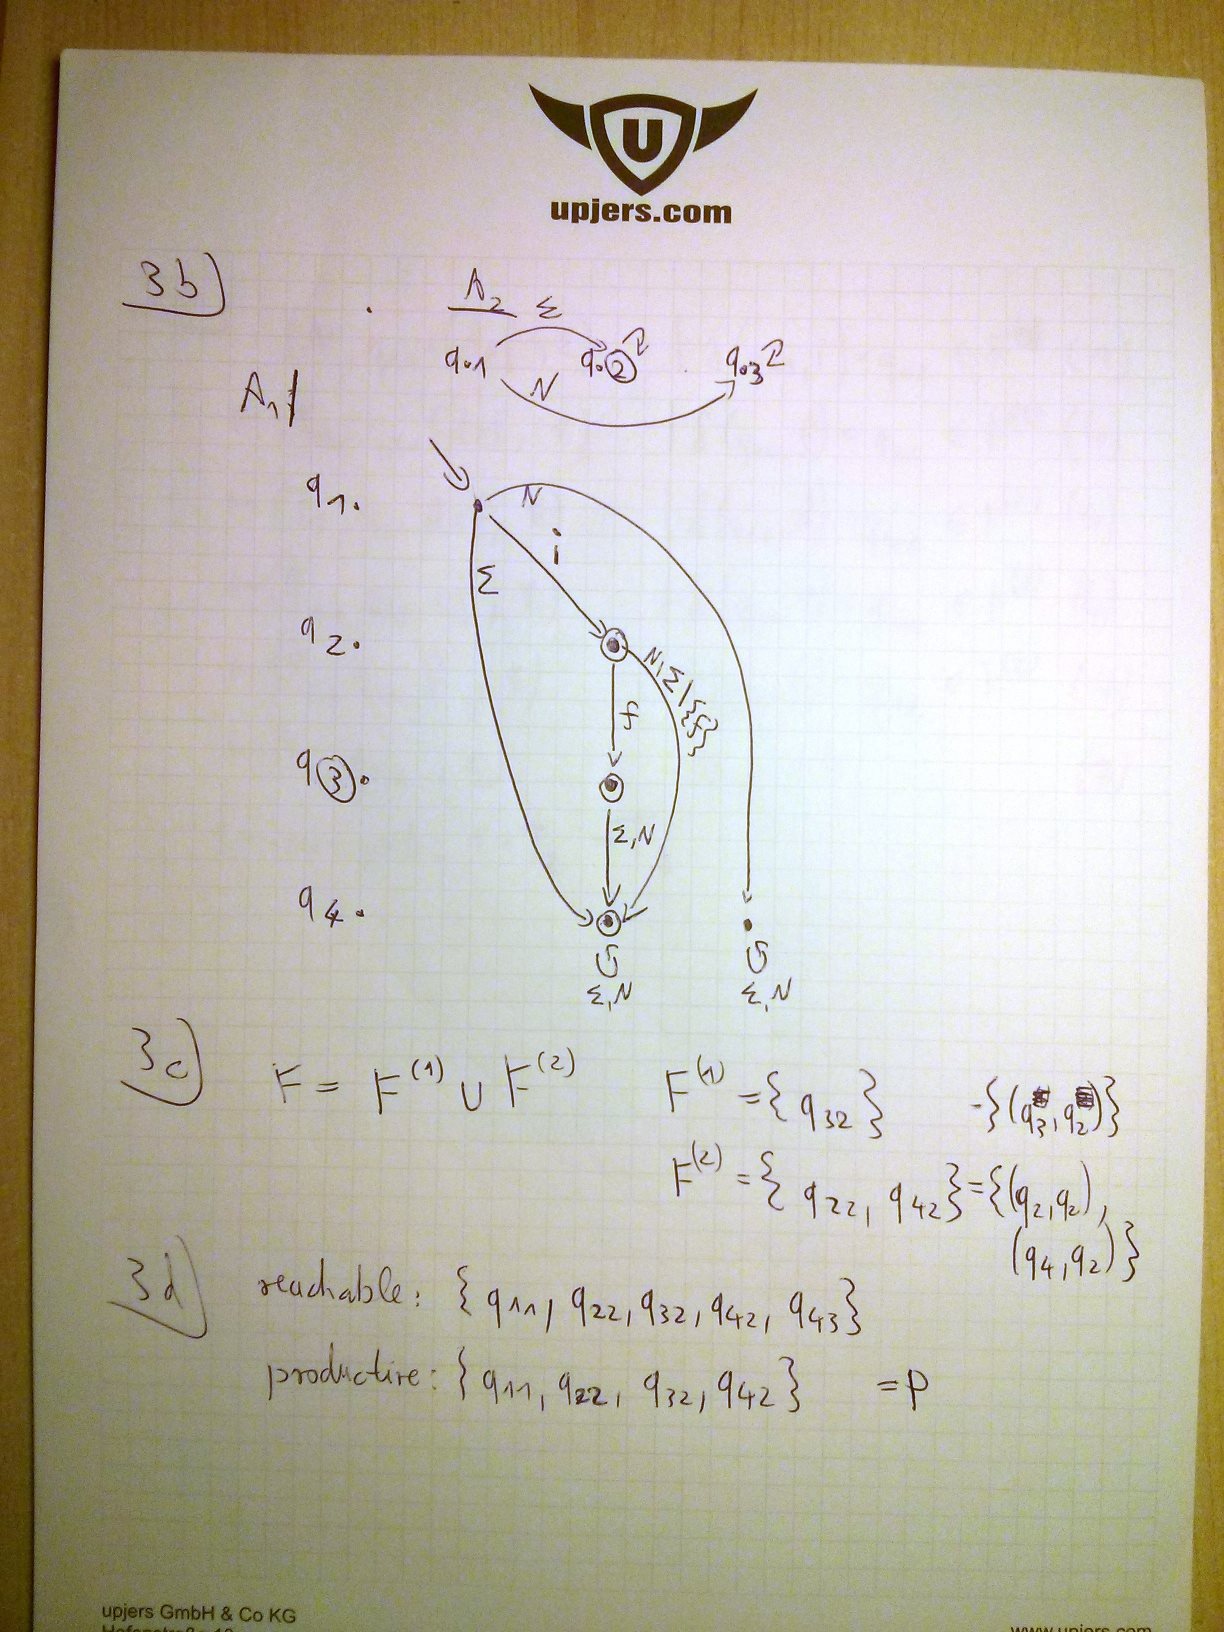 U
upjers.com
3b)
A₂
Σ
q.1 q.2 q.3
N
A₁
q1.
N
i
Σ
q2.
N,Σ\{f}
f
q3.
Σ,N
q4.
Σ,N Σ,N
3c) F = F⁽¹⁾ ∪ F⁽²⁾ F⁽¹⁾ = { q32 } = {(q3,q2)}
F⁽²⁾ = { q22, q42 } = {(q2,q2),
(q4,q2)}
3d) reachable: { q11, q22, q32, q42, q43 }
productive: { q11, q22, q32, q42 } = P
upjers GmbH & Co KG
www.upjers.com